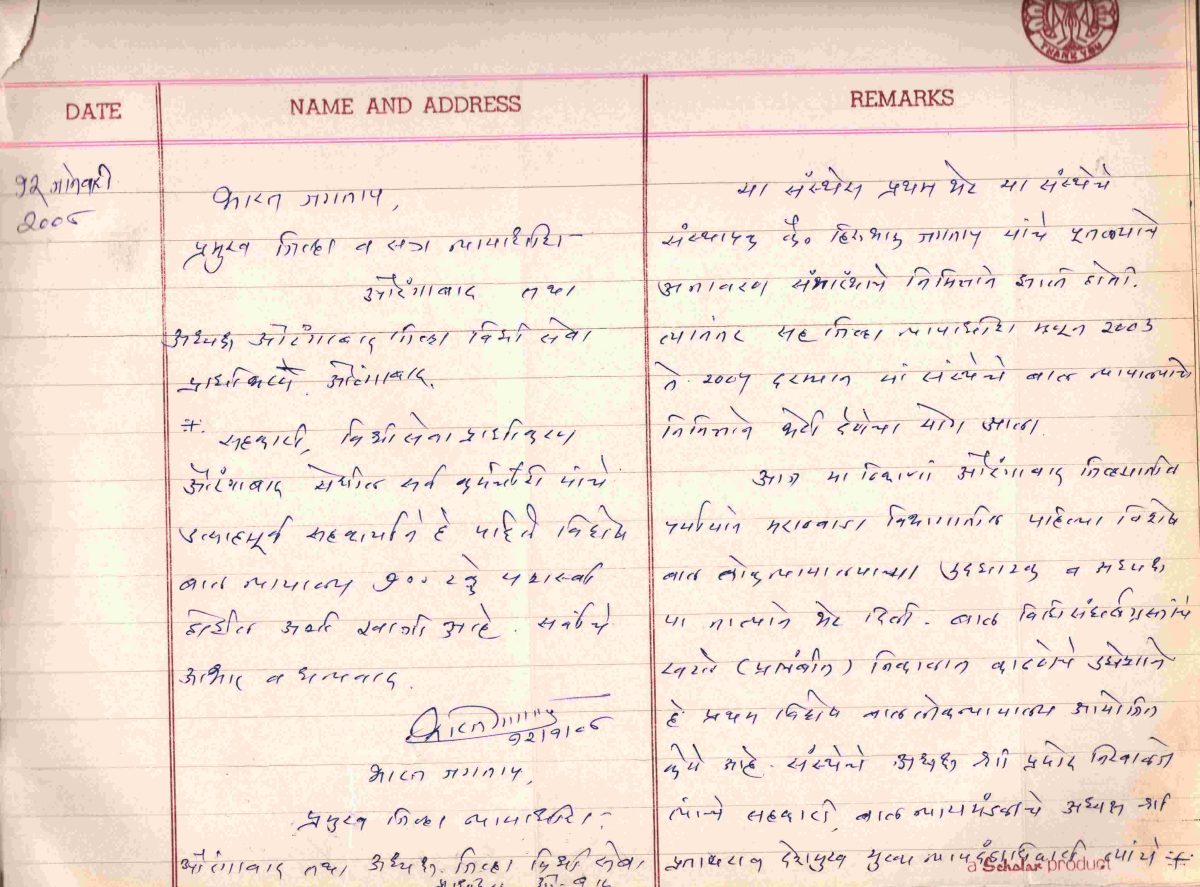 THANK YOU
DATE
NAME AND ADDRESS
REMARKS
१२ जानेवारी
2008
भारत जगताप,
प्रमुख जिल्हा व सत्र न्यायाधीश
औरंगाबाद तथा
अध्यक्ष औरंगाबाद जिल्हा विधी सेवा
प्राधिकरण औरंगाबाद.
सहकारी, विधी सेवा प्राधिकरण
औरंगाबाद येथील सर्व कर्मचारी यांचे
उत्साहपूर्ण सहकार्याने हे पहिले विशेष
बाल न्यायालय १०० टक्के यशस्वी
होईल अशी खात्री आहे. सर्वांचे
आभार व धन्यवाद.
भारत जगताप,
प्रमुख जिल्हा न्यायाधीश
औरंगाबाद तथा अध्यक्ष जिल्हा विधी सेवा
या संस्थेस प्रथम भेट या संस्थेचे
संस्थापक कै० जगताप यांचे पुतळ्याचे
अनावरण समारंभाचे निमित्ताने झाली होती.
त्यानंतर सह जिल्हा न्यायाधीश म्हणून 2003
ते दरम्यान या संस्थेचे बाल न्यायालयाचे
निमित्ताने भेटी देणेचा योग आला.
आज या ठिकाणी औरंगाबाद जिल्ह्यातील
पर्यायाने मराठवाडा विभागातील पहिल्या विशेष
बाल लोक न्यायालयाच्या उदघाटक व अध्यक्ष
या नात्याने भेट दिली. बाल
(प्रलंबीत) निकालात काढणेचे उद्देशाने
हे प्रथम विशेष बाल लोकन्यायालय आयोजित
केले आहे. संस्थेचे अध्यक्ष श्री
यांचे सहकारी, बाल न्यायमंडळाचे अध्यक्ष श्री
प्रतापराव देशमुख मुख्य न्यायदंडाधिकारी यांचे
a Scholar product